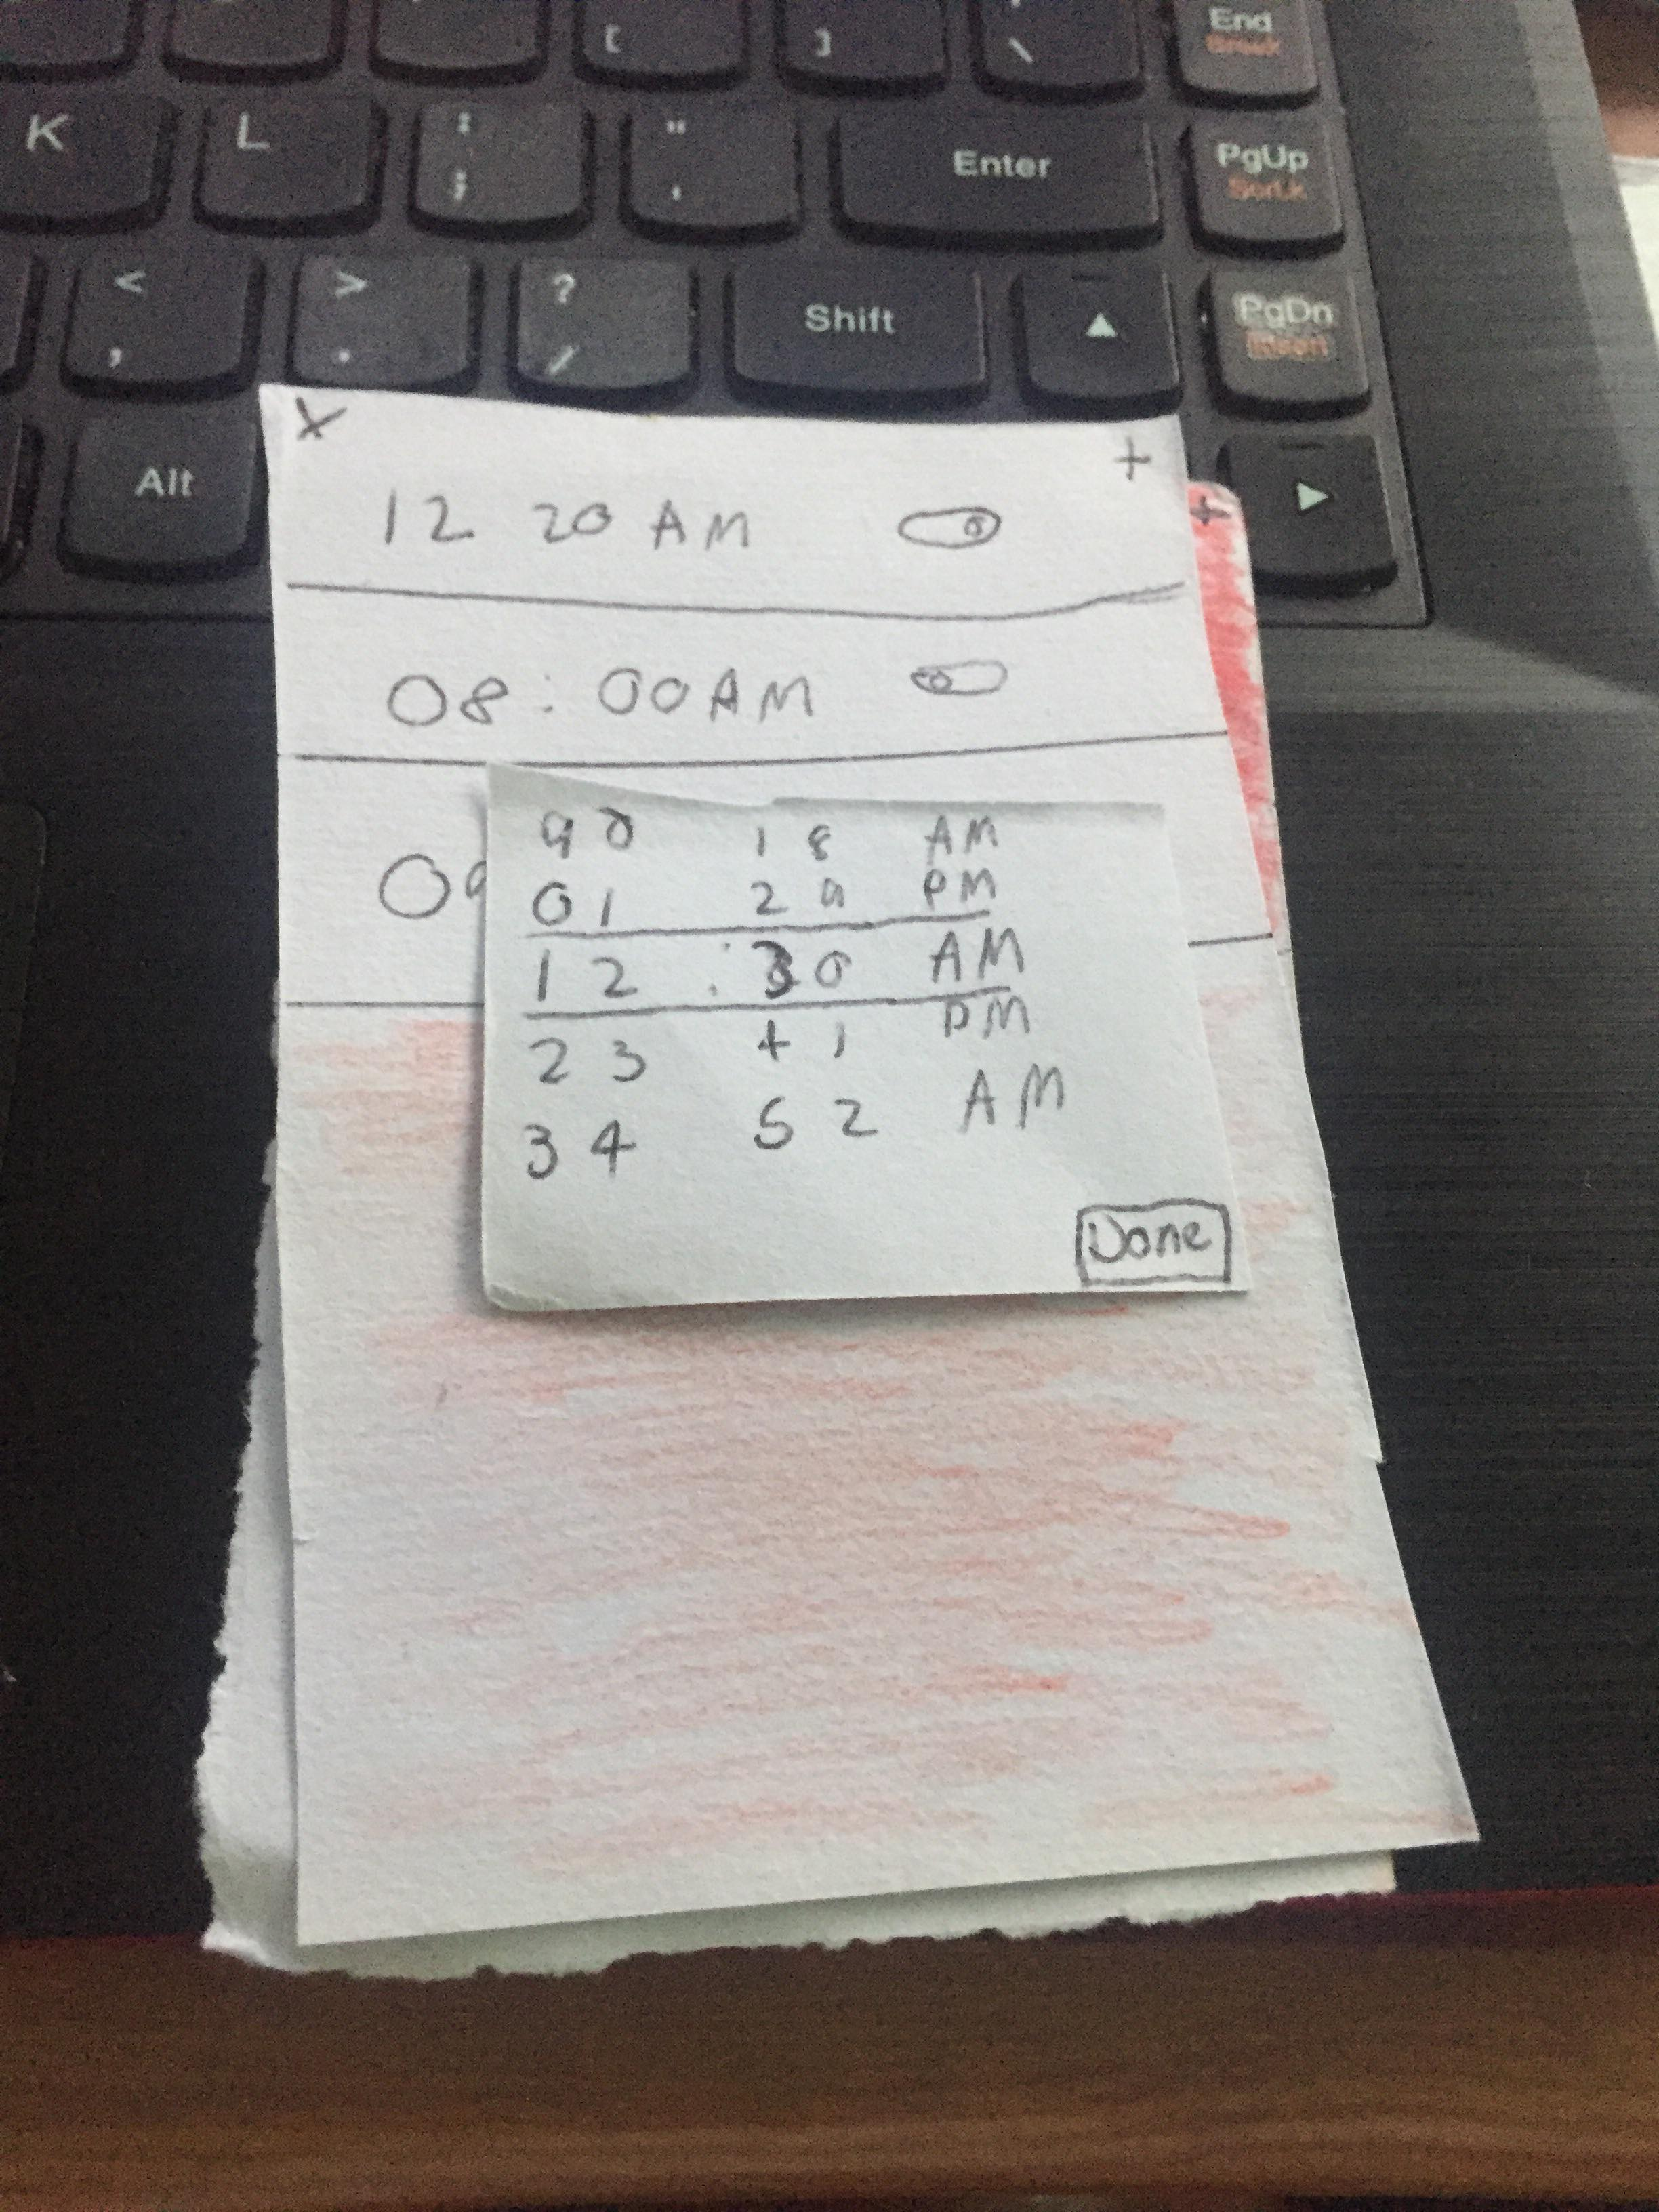 [ ] \ End
Break
K L : ; " ' Enter PgUp
ScrLk
< , > . ? / Shift ▲ PgDn
Insert
Alt ▶
x +
+
12 20 AM
08 : 00 AM
09
9 0 1 8 AM
0 1 2 9 PM
1 2 : 3 0 AM
2 3 4 1 PM
3 4 5 2 AM
Done